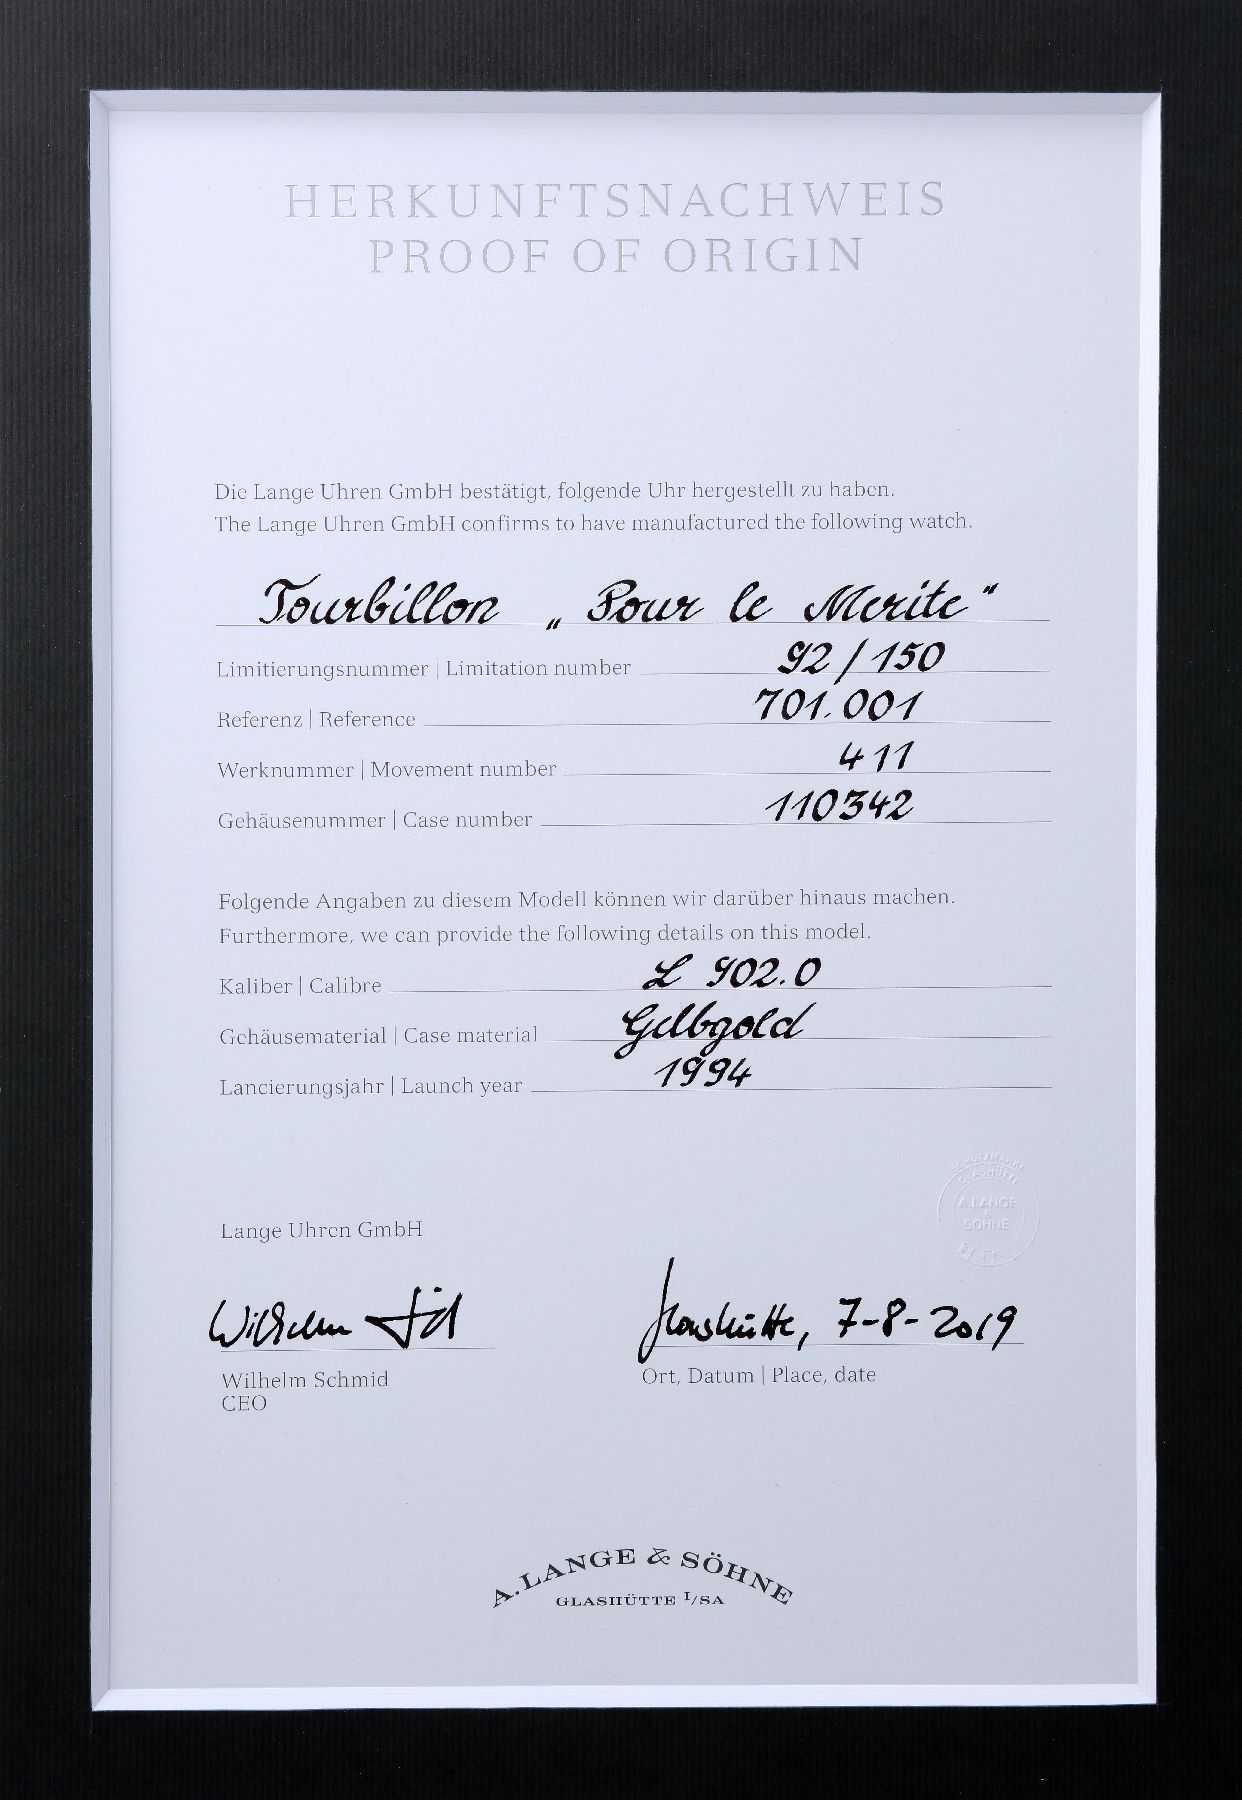 HERKUNFTSNACHWEIS
PROOF OF ORIGIN
Die Lange Uhren GmbH bestätigt, folgende Uhr hergestellt zu haben.
The Lange Uhren GmbH confirms to have manufactured the following watch.
Tourbillon „Pour le Merite“
Limitierungsnummer | Limitation number 92/150
Referenz | Reference 701.001
Werknummer | Movement number 411
Gehäusenummer | Case number 110342
Folgende Angaben zu diesem Modell können wir darüber hinaus machen.
Furthermore, we can provide the following details on this model.
Kaliber | Calibre L 902.0
Gehäusematerial | Case material Gelbgold
Lancierungsjahr | Launch year 1994
SCHUTZMARKE
GLASHÜTTE
A. LANGE
&
SÖHNE
Lange Uhren GmbH
Wilhelm Glashütte, 7-8-2019
Wilhelm Schmid Ort, Datum | Place, date
CEO
A. LANGE & SÖHNE
GLASHÜTTE I/SA